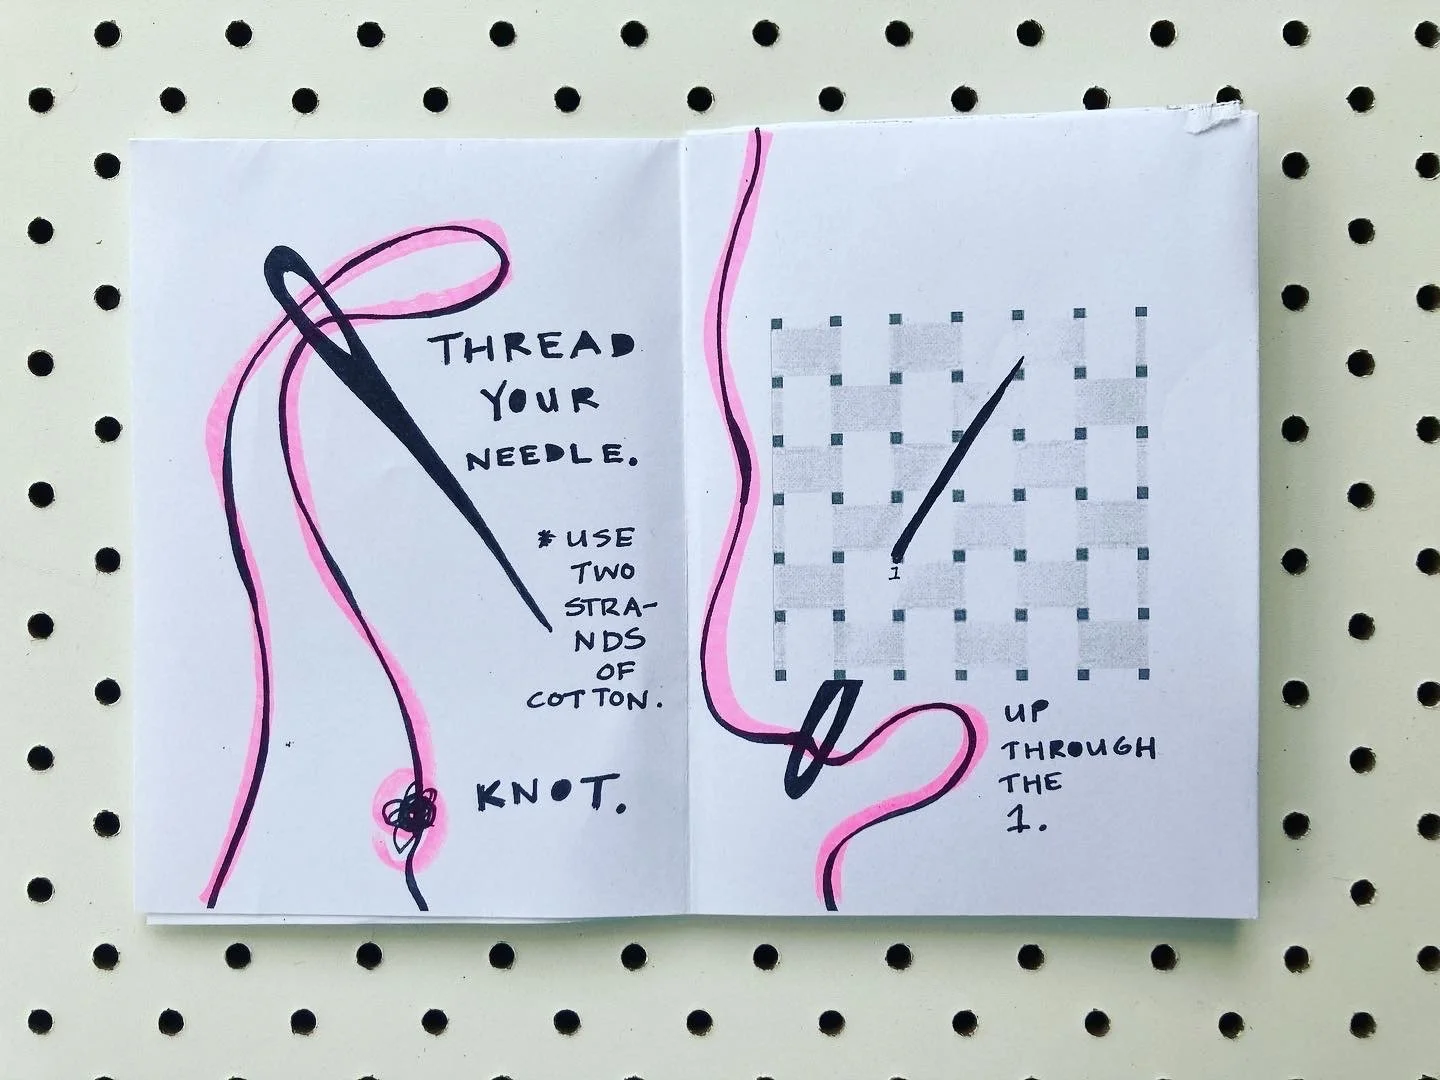 THREAD
YOUR
NEEDLE.
*USE
TWO
STRA-
NDS
OF
COTTON.
KNOT.
1
UP
THROUGH
THE
1.